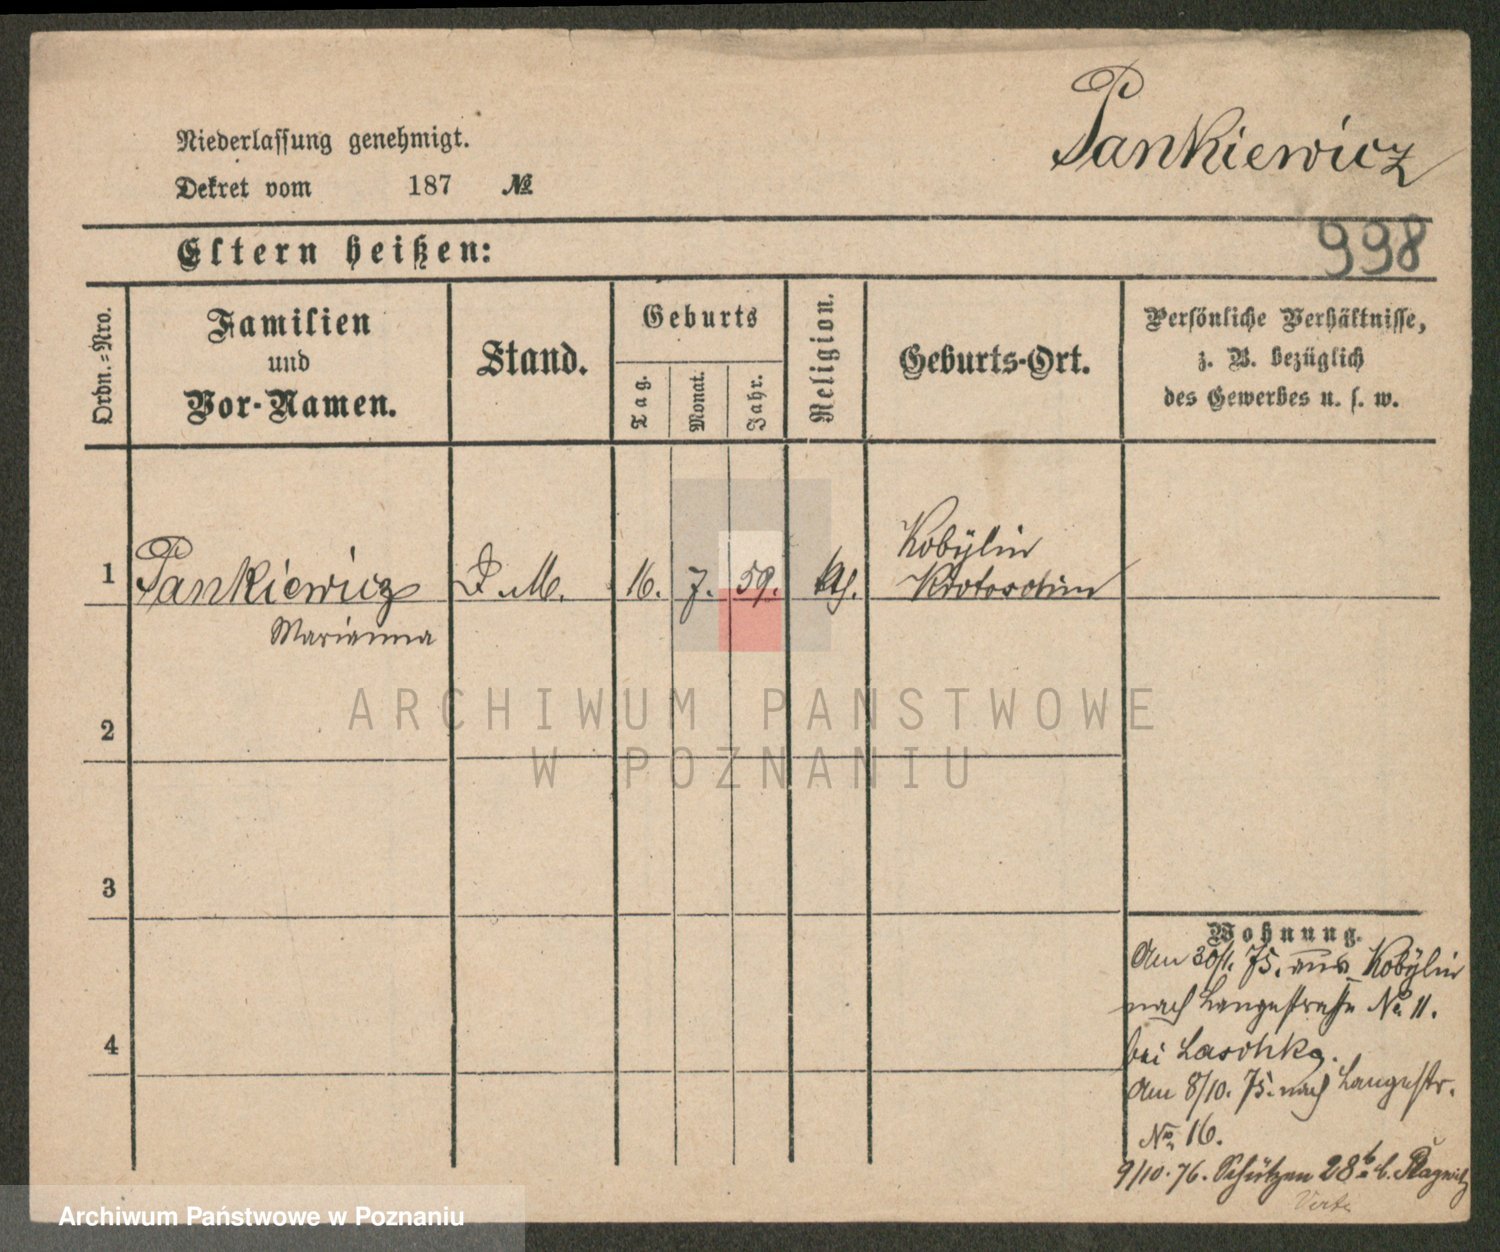 Pankiewicz
Niederlassung genehmigt.
Dekret vom 187 №
998
Eltern heißen:
Ordn.-Nro.
Familien
und
Vor-Namen.
Stand.
Geburts
Tag.
Monat.
Jahr.
Religion.
Geburts-Ort.
Persönliche Verhältnisse,
z. B. bezüglich
des Gewerbes u. s. w.
1 Pankiewicz D. M. 16. 7. 59. kth. Kobylin
Krotoschin
Marianna
2
3
4
Wohnung.
Am 30/1. 75. aus Kobylin
nach Langestraße No 11.
bei Laschke.
Am 8/10. 75. nach Langestr.
No 16.
9/10. 76. Schützen 28b b.
Verte
ARCHIWUM PANSTWOWE
W POZNANIU
Archiwum Państwowe w Poznaniu